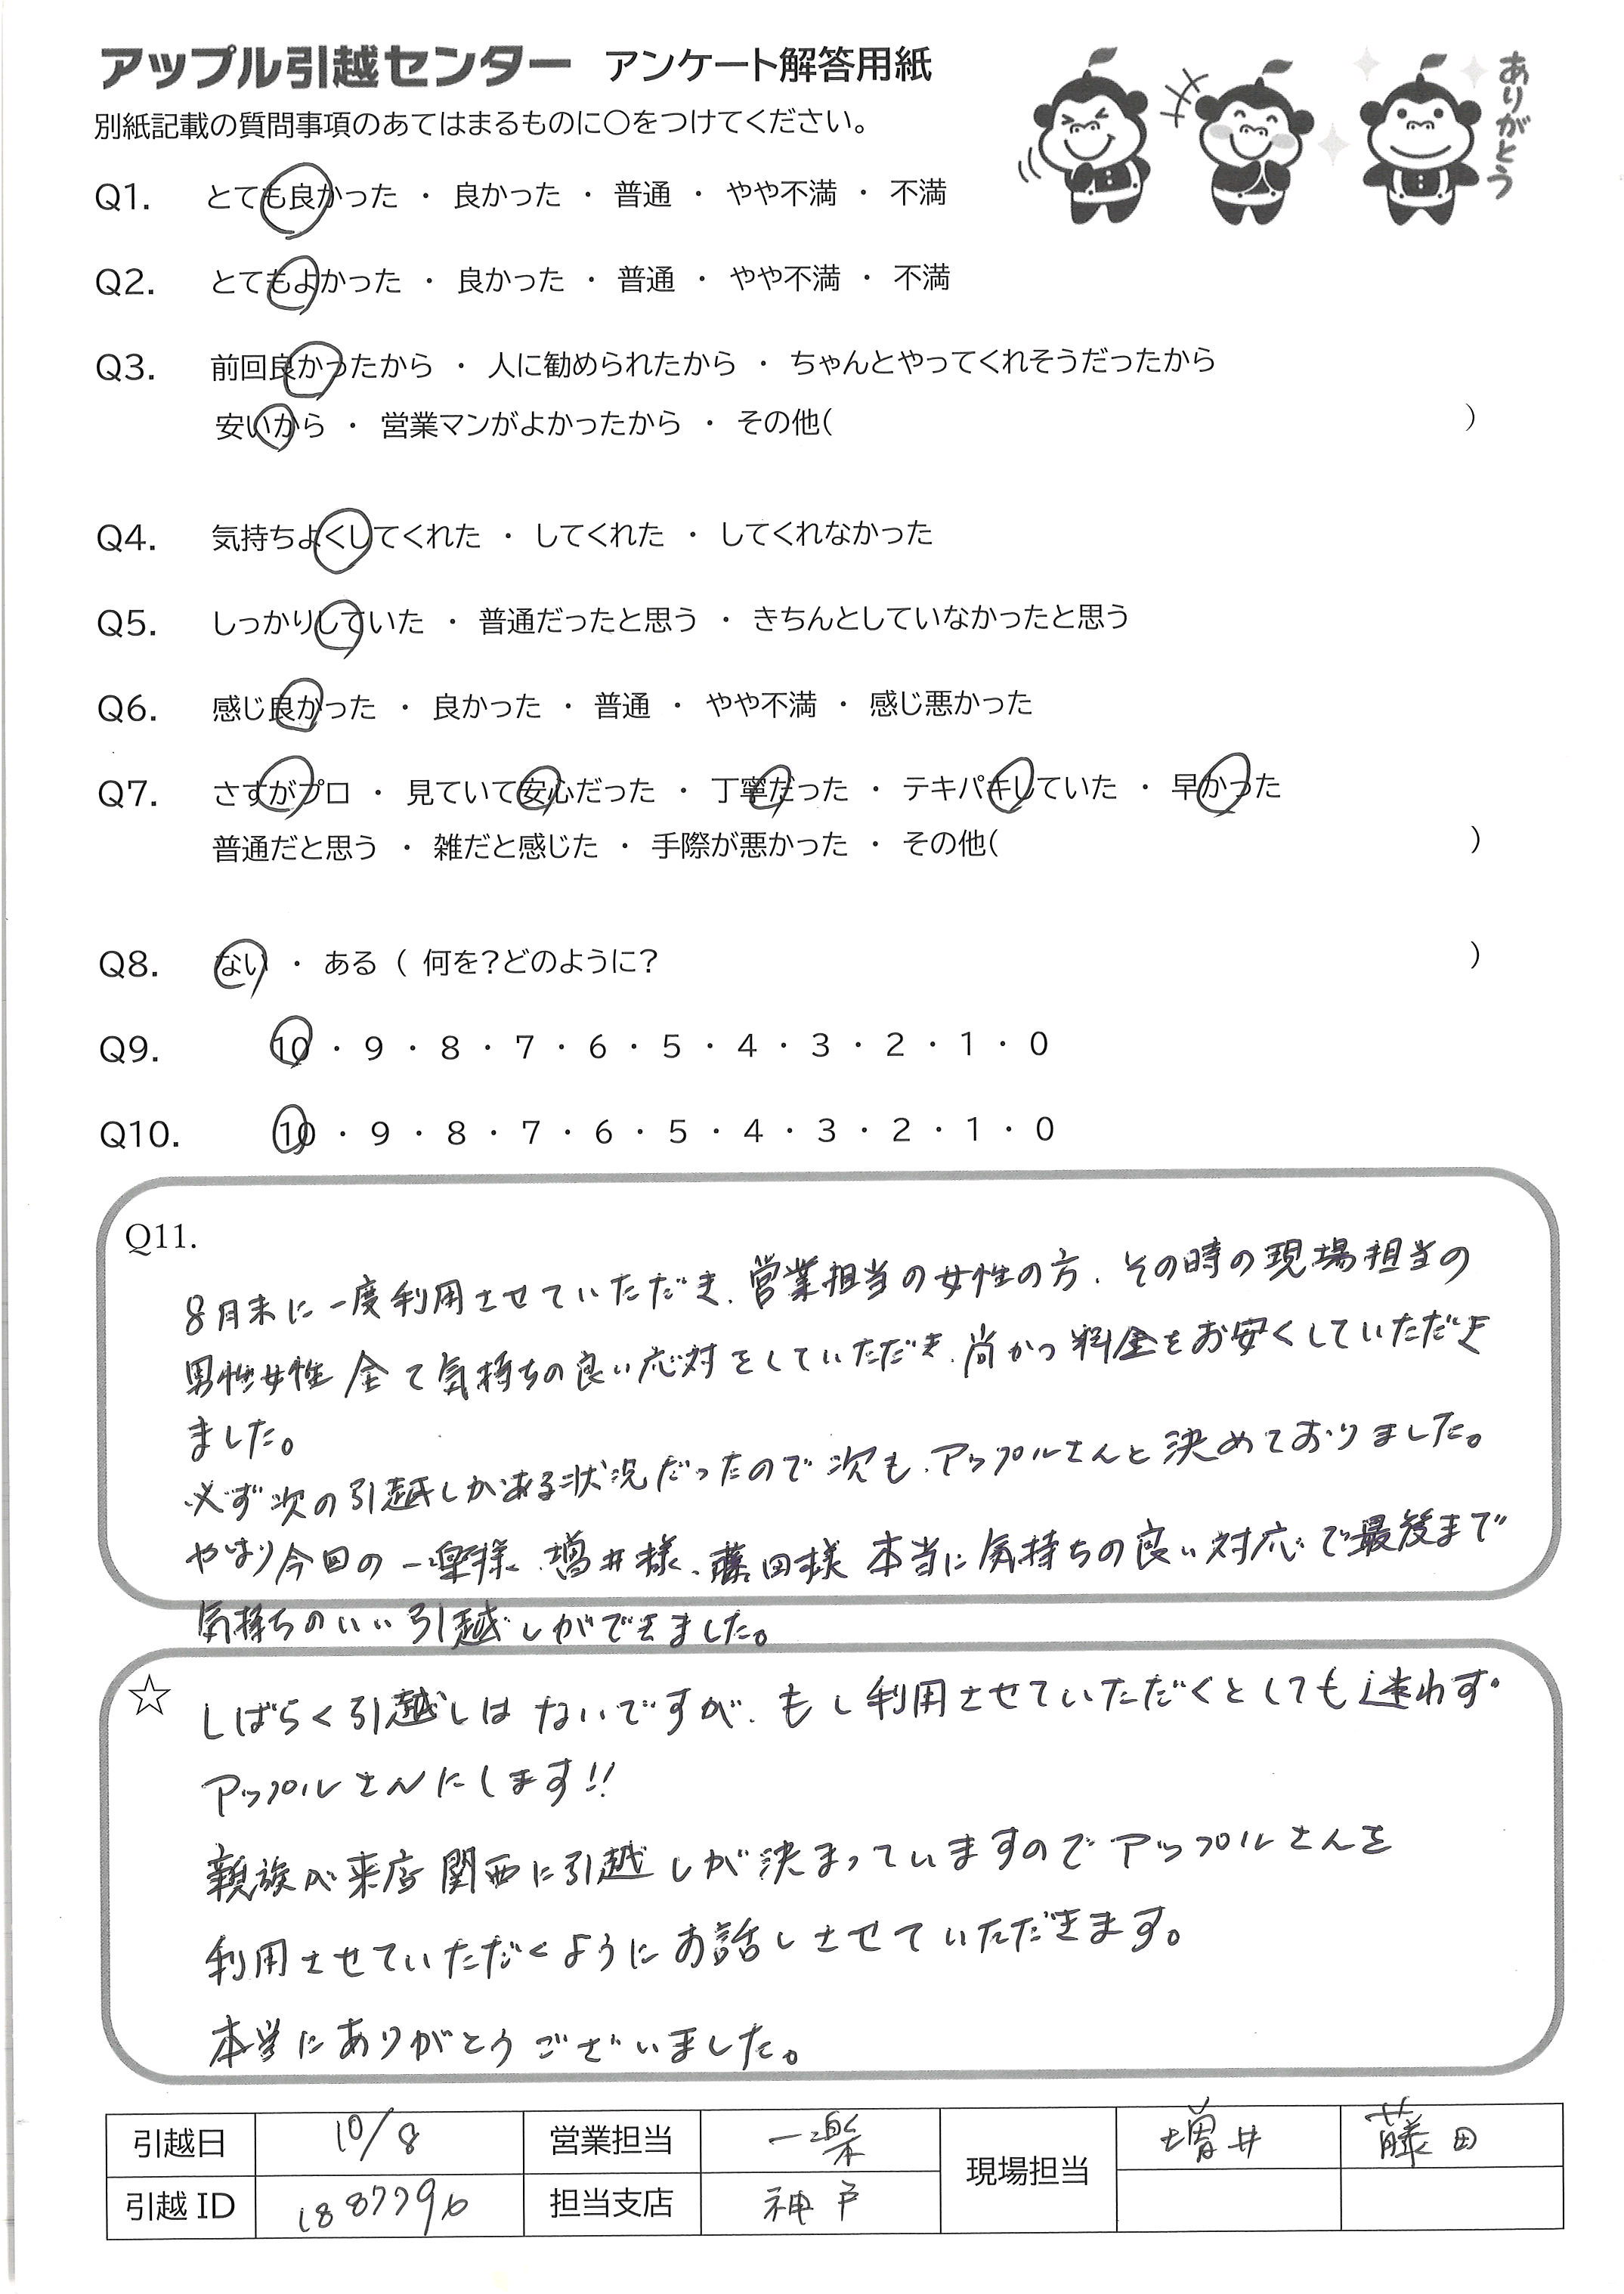 アップル引越センター アンケート解答用紙
ありがとう
別紙記載の質問事項のあてはまるものに○をつけてください。
Q1. とても良かった ・ 良かった ・ 普通 ・ やや不満 ・ 不満
Q2. とてもよかった ・ 良かった ・ 普通 ・ やや不満 ・ 不満
Q3. 前回良かったから ・ 人に勧められたから ・ ちゃんとやってくれそうだったから
安いから ・ 営業マンがよかったから ・ その他( )
Q4. 気持ちよくしてくれた ・ してくれた ・ してくれなかった
Q5. しっかりしていた ・ 普通だったと思う ・ きちんとしていなかったと思う
Q6. 感じ良かった ・ 良かった ・ 普通 ・ やや不満 ・ 感じ悪かった
Q7. さすがプロ ・ 見ていて安心だった ・ 丁寧だった ・ テキパキしていた ・ 早かった
普通だと思う ・ 雑だと感じた ・ 手際が悪かった ・ その他( )
Q8. ない ・ ある ( 何を?どのように? )
Q9. 10 ・ 9 ・ 8 ・ 7 ・ 6 ・ 5 ・ 4 ・ 3 ・ 2 ・ 1 ・ 0
Q10. 10 ・ 9 ・ 8 ・ 7 ・ 6 ・ 5 ・ 4 ・ 3 ・ 2 ・ 1 ・ 0
Q11.
8月末に一度利用させていただき、営業担当の女性の方、その時の現場担当の
男性女性 全て気持ちの良い応対をしていただき、尚かつ料金をお安くしていただき
ました。
必ず次の引越しがある状況だったので次も、アップルさんと決めておりました。
やはり今回の一楽様、増井様、藤田様 本当に気持ちの良い対応で最後まで
気持ちのいい引越しができました。
☆ しばらく引越しはないですが、もし利用させていただくとしても迷わず
アップルさんにします!!
親族が来店関西に引越しが決まっていますのでアップルさんを
利用させていただくようにお話しさせていただきます。
本当にありがとうございました。
引越日 10/8 営業担当 一楽 現場担当 増井 藤田
引越ID 1887796 担当支店 神戸